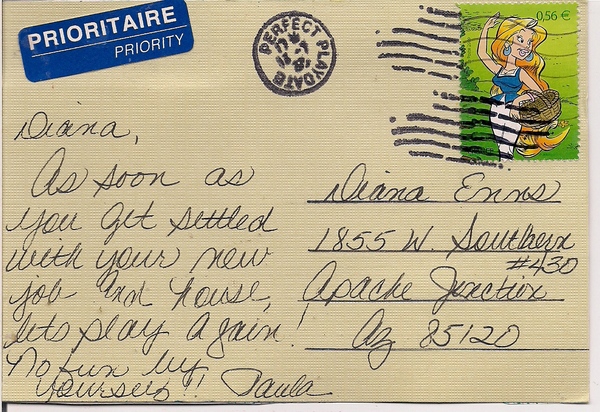 PRIORITAIRE
PRIORITY
PERFECT PLAYDATE
0,56 €
Diana,
As soon as
you get settled
with your new
job and house,
lets play again!
No fun by
yourself!! Paula
Diana Enns
1855 W. Southern
#430
Apache Junction
Az 85120